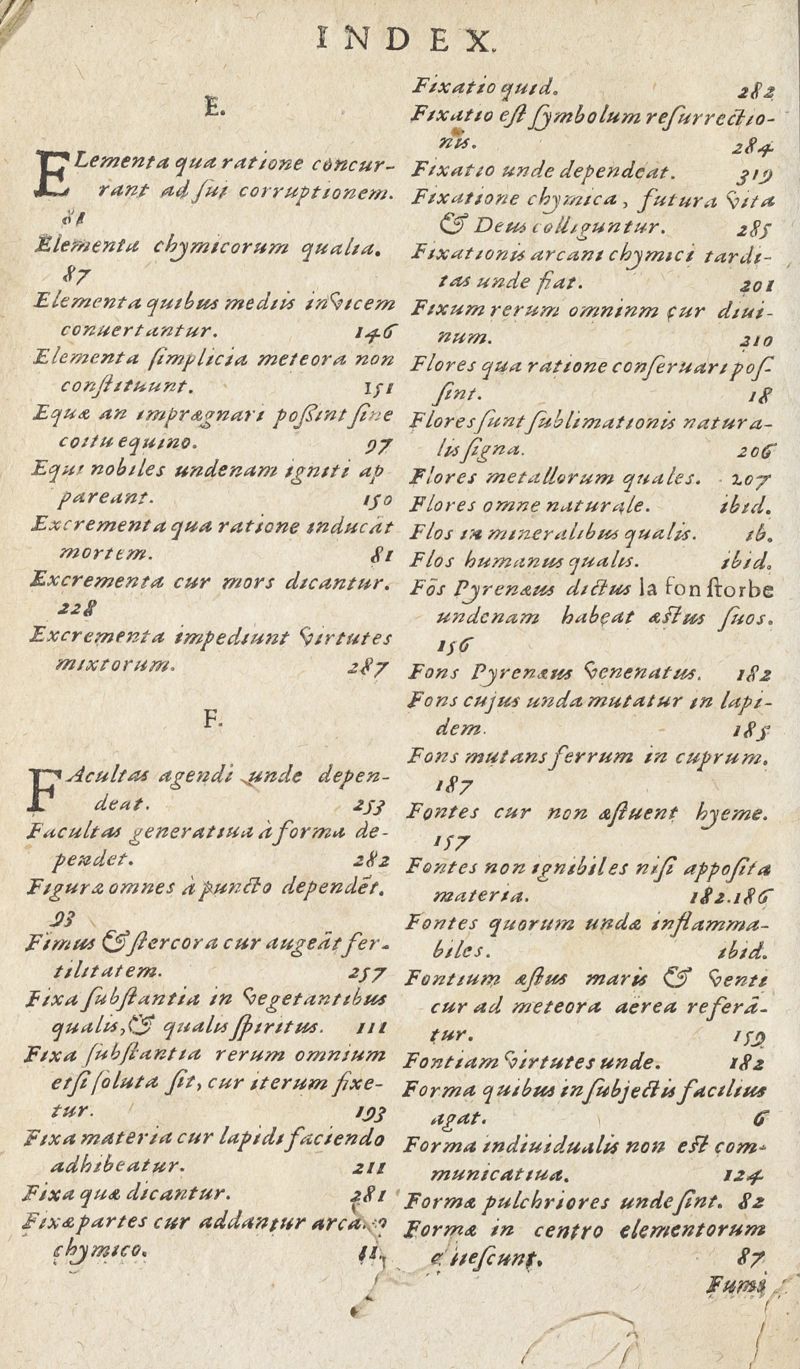 INDEX.
E.
ELementa qua ratione concur-
rant ad ſui corruptionem.
81
Elementa chymicorum qualia.
87
Elementa quibus mediis invicem
conuertantur. 146
Elementa ſimplicia meteora non
conſtituunt. 151
Equæ an imprægnari poßint ſine
coitu equino. 97
Equi nobiles undenam igniti ap
pareant. 150
Excrementa qua ratione inducāt
mortem. 81
Excrementa cur mors dicantur.
228
Excrementa impediunt virtutes
mixtorum. 287
F.
FAcultas agendi unde depen-
deat. 253
Facultas generatiua à forma de-
pendet. 282
Figuræ omnes à puncto dependēt.
93
Fimus & ſtercora cur augeāt fer-
tilitatem. 257
Fixa ſubſtantia in vegetantibus
qualis, & qualis ſpiritus. 111
Fixa ſubſtantia rerum omnium
etſi ſoluta ſit, cur iterum fixe-
tur. 193
Fixa materia cur lapidi faciendo
adhibeatur. 211
Fixa quæ dicantur. 281
Fixæ partes cur addantur
chymico.
Fixatio quid. 282
Fixatio eſt ſymbolum reſurrectio-
nis. 284
Fixatio unde dependeat. 319
Fixatione chymica, futura vita
& Deus colliguntur. 285
Fixationis arcani chymici tardi-
tas unde fiat. 201
Fixum rerum omninm cur diui-
num. 210
Flores qua ratione conſeruari poſ-
ſint. 18
Flores ſunt ſublimationis natura-
lis ſigna. 206
Flores metallorum quales. 207
Flores omne naturale. ibid.
Flos in mineralibus qualis. ib.
Flos humanus qualis. ibid.
Fōs Pyrenæus dictus la fon ſtorbe
undenam habeat æſtus ſuos.
156
Fons Pyrenæus venenatus. 182
Fons cujus unda mutatur in lapi-
dem. 185
Fons mutans ferrum in cuprum.
187
Fontes cur non æſtuent hyeme.
157
Fontes non ignibiles niſi appoſita
materia. 182.186
Fontes quorum undæ inflamma-
biles. ibid.
Fontium æſtus maris & venti
cur ad meteora aerea referā-
tur. 159
Fontiam virtutes unde. 182
Forma quibus in ſubjectis facilius
agat. 6
Forma indiuidualis non eſt com-
municatiua. 124
Formæ pulchriores unde ſint. 82
Formæ in centro elementorum
87
Fumi